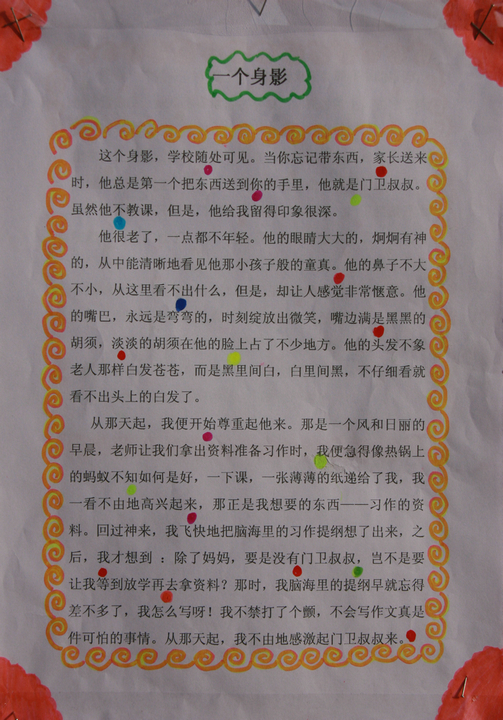 一个身影
这个身影，学校随处可见。当你忘记带东西，家长送来
时，他总是第一个把东西送到你的手里，他就是门卫叔叔。
虽然他不教课，但是，他给我留得印象很深。
他很老了，一点都不年轻。他的眼睛大大的，炯炯有神
的，从中能清晰地看见他那小孩子般的童真。他的鼻子不大
不小，从这里看不出什么，但是，却让人感觉非常惬意。他
的嘴巴，永远是弯弯的，时刻绽放出微笑，嘴边满是黑黑的
胡须，淡淡的胡须在他的脸上占了不少地方。他的头发不象
老人那样白发苍苍，而是黑里间白，白里间黑，不仔细看就
看不出头上的白发了。
从那天起，我便开始尊重起他来。那是一个风和日丽的
早晨，老师让我们拿出资料准备习作时，我便急得像热锅上
的蚂蚁不知如何是好，一下课，一张薄薄的纸递给了我，我
一看不由地高兴起来，那正是我想要的东西——习作的资
料。回过神来，我飞快地把脑海里的习作提纲想了出来，之
后，我才想到：除了妈妈，要是没有门卫叔叔，岂不是要
让我等到放学再去拿资料？那时，我脑海里的提纲早就忘得
差不多了，我怎么写呀！我不禁打了个颤，不会写作文真是
件可怕的事情。从那天起，我不由地感激起门卫叔叔来。